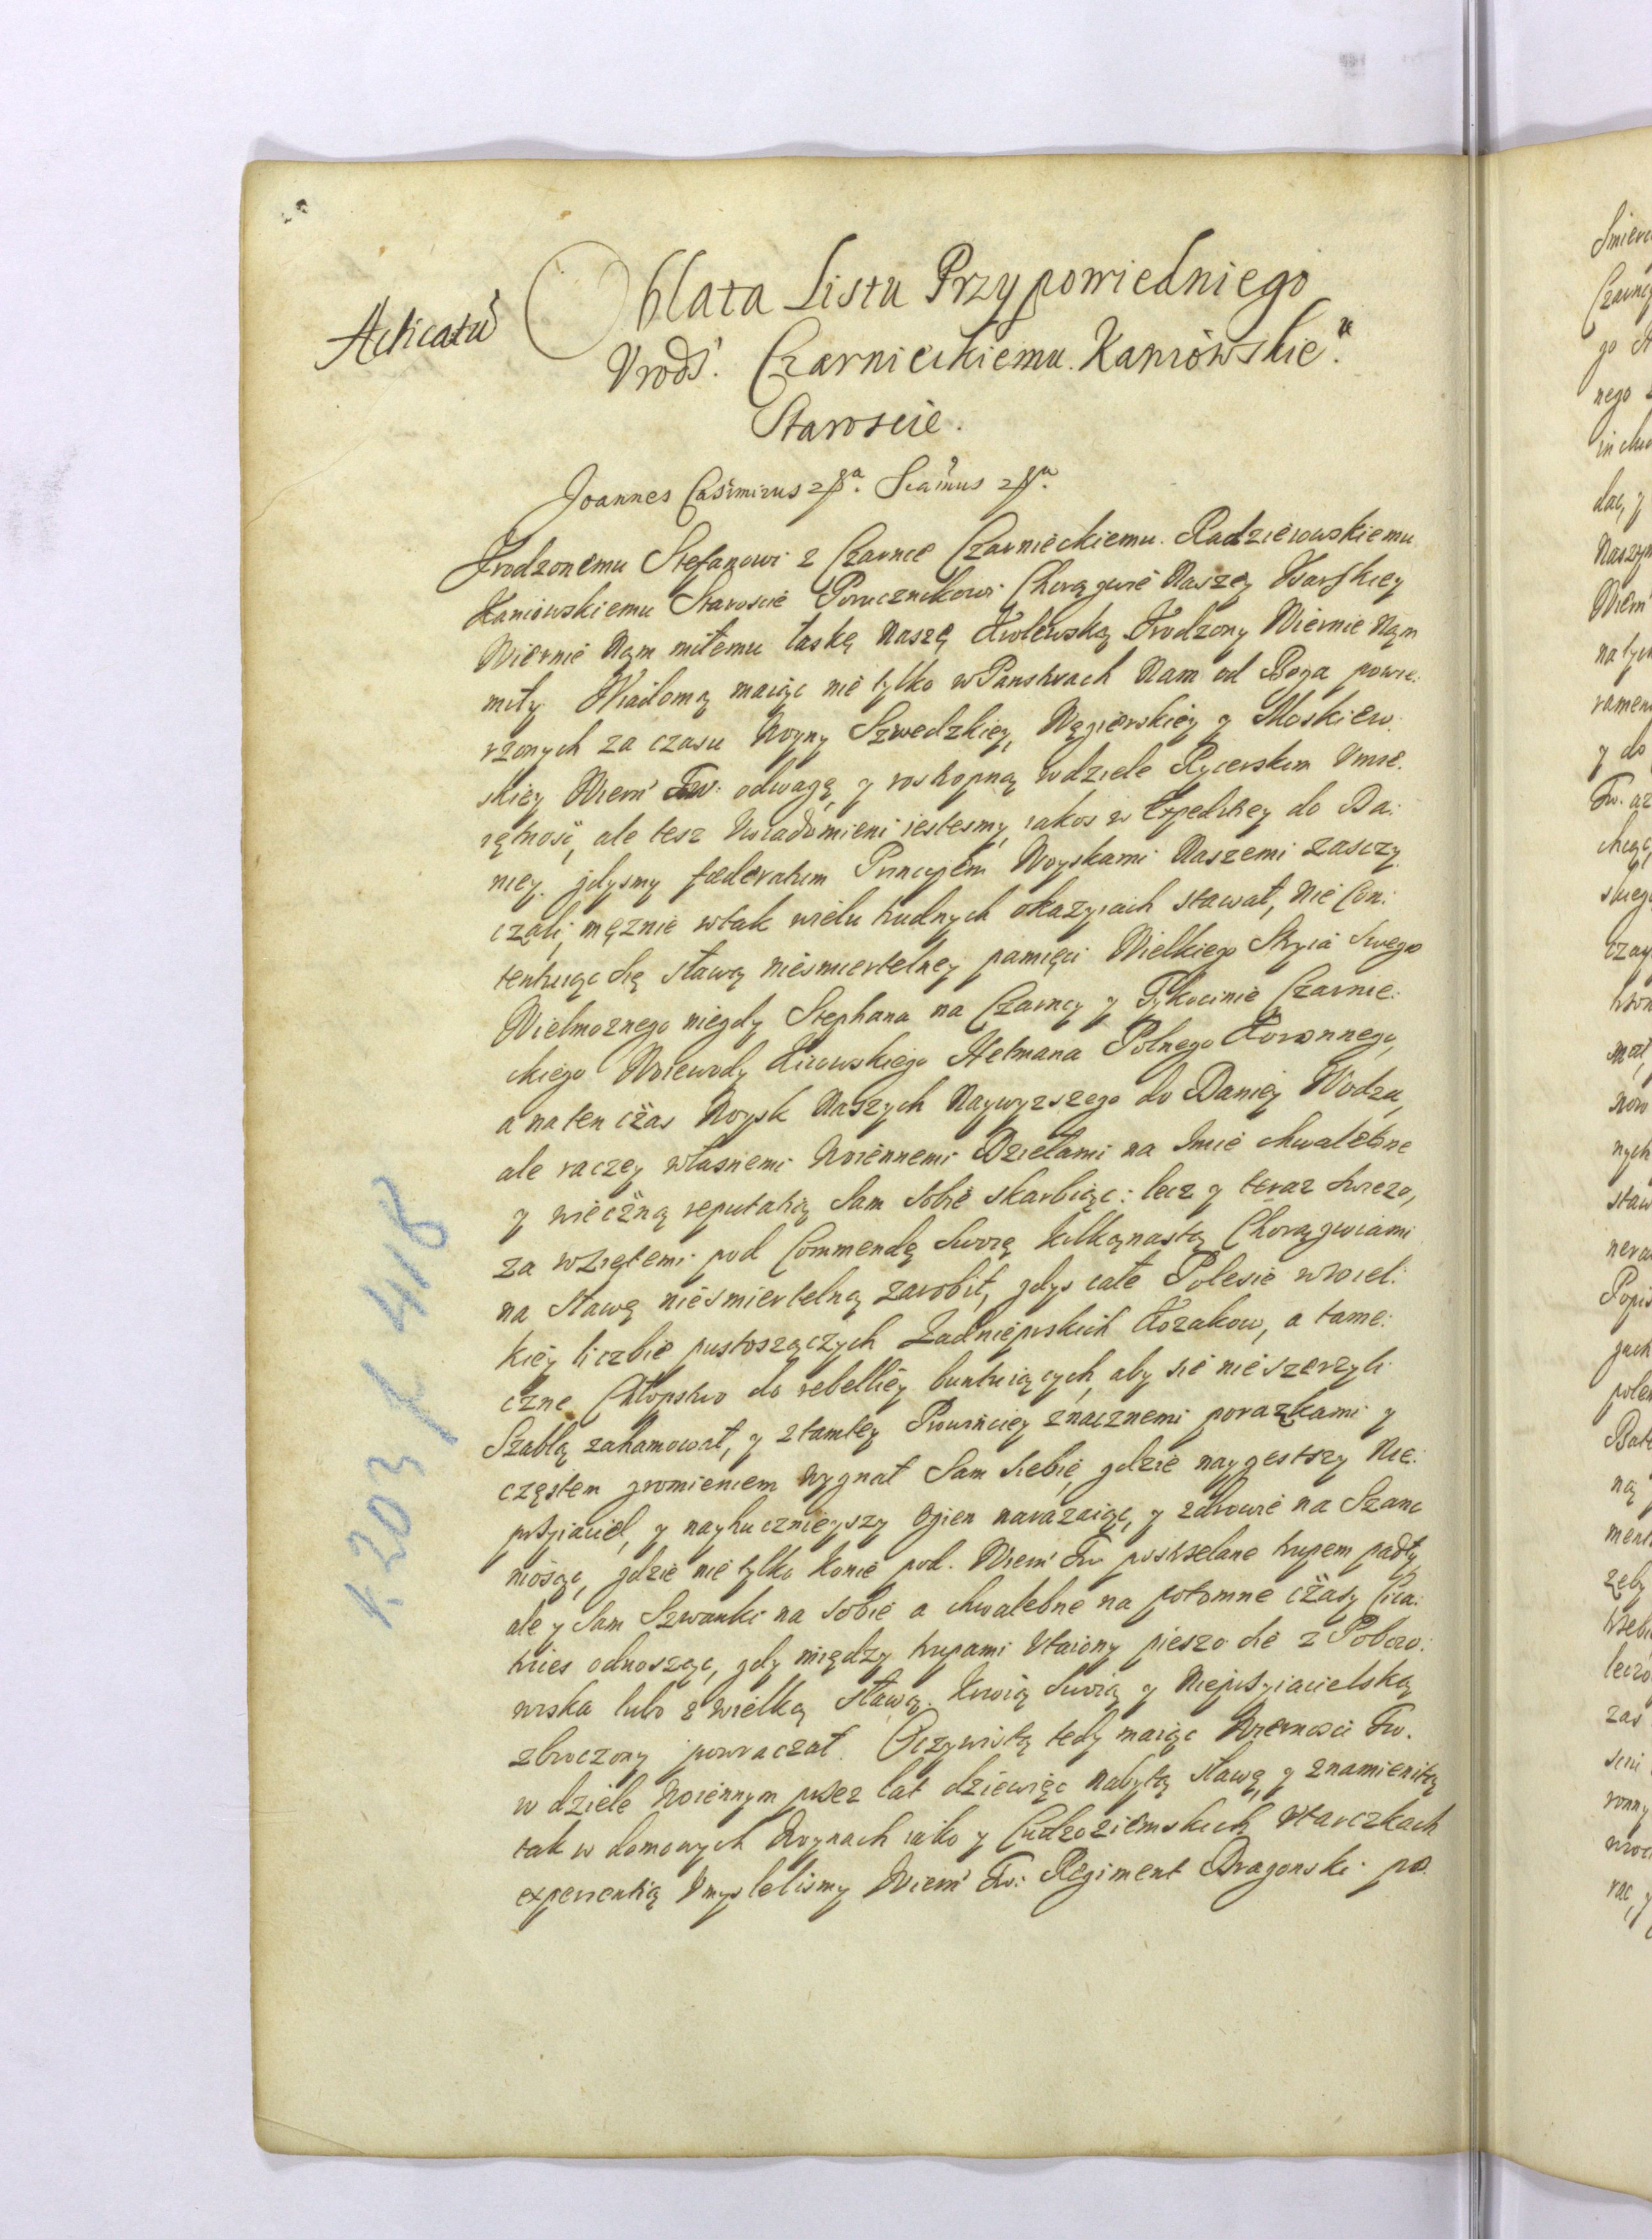 Acticatũ
Oblata Listu Przypowiedniego
Vrodz. Czarnieckiemu Kaniowskie.
Staroscie.
Joannes Casimirus
Vrodzonemu Stefanowi z Czarnce Czarnieckiemu Radziejowskiemu
Kaniowskiemu Staroscie Porucznikowi Chorągwie Naszey Husarskiey
Wiernie Nąm miłemu łaskę Naszę Krolewską. Vrodzony Wiernie Nąm
miły. Wiadomą maiąc nie tylko w Panstwach Nam od Boga powie:
rzonych za czasu Woyny Szwedzkiey, Węgierskiey y Moskiew:
skiey Wiern Tw: odwagę, y roskopną w dziele Rycerskim Vmie:
iętnosć, ale tesz Vwiadomieni iestesmy, iakos w Expeditiey do Da:
niey. gdysmy fæderatum Principem Woyskami Naszemi zasczy:
czali, mężnie w tak wielu trudnych okazyiach stawał, nie Con:
tentuiąc się sławą niesmiertelney pamięci Wielkiego Stryia Swego
Wielmoznego niegdy Stephana na Czarncy y Tykocinie Czarnie:
ckiego Woiewody Kiiowskiego Hetmana Polnego Koronnego,
a na ten czas Woysk Naszych Naywyzszego do Daniey Wodza,
ale raczey własnemi Woiennemi Dziełami na Imie chwalebne
y wieczną reputatią Sam sobie skarbiąc: lecz y teraz swiezo,
za wziętemi pod Commendę Swoią kilkąnastą Chorągwiami
na sławę niesmiertelną zarobił, gdys całe Polesie w wiel:
kiey liczbie pustoszących Zadnieprskich Kozakow, a tame:
czne Chłopstwo do rebelliey buntuiących, aby sie nie szerzyli
Szablą zahamował, y z tamtey Prowinciey znacznemi porazkami y
częstem gromieniem wygnał Sam siebie, gdzie naygestszy Nie:
przyiaciel, y nayhucznieyszy Ogien narazaiąc, y zdrowie na Szanc
niosąc, gdzie nie tylko konie pod Wiern Tw postrzelane trupem padły,
ale y Sam Szwanki na sobie a chwalebne na potomne czasy Cica:
trices odnosząc, gdy między trupami Vtaiony pieszo sie z Poboio:
wiska lubo z wielką sławą. Krwią Swoią y Nieprzyiacielską
zbroczony powraczał. Oczywistą tedy maiąc Wiernosci Tw.
w dziele Woiennym przez lat dziewięc nabytą sławę, y znamienitą
tak w domowych Woynach iako y Cudzoziemskich Vtarczkach
experientią Vmyslelismy Wiern Tw: Regiment Dragonski po:
1203 k 418